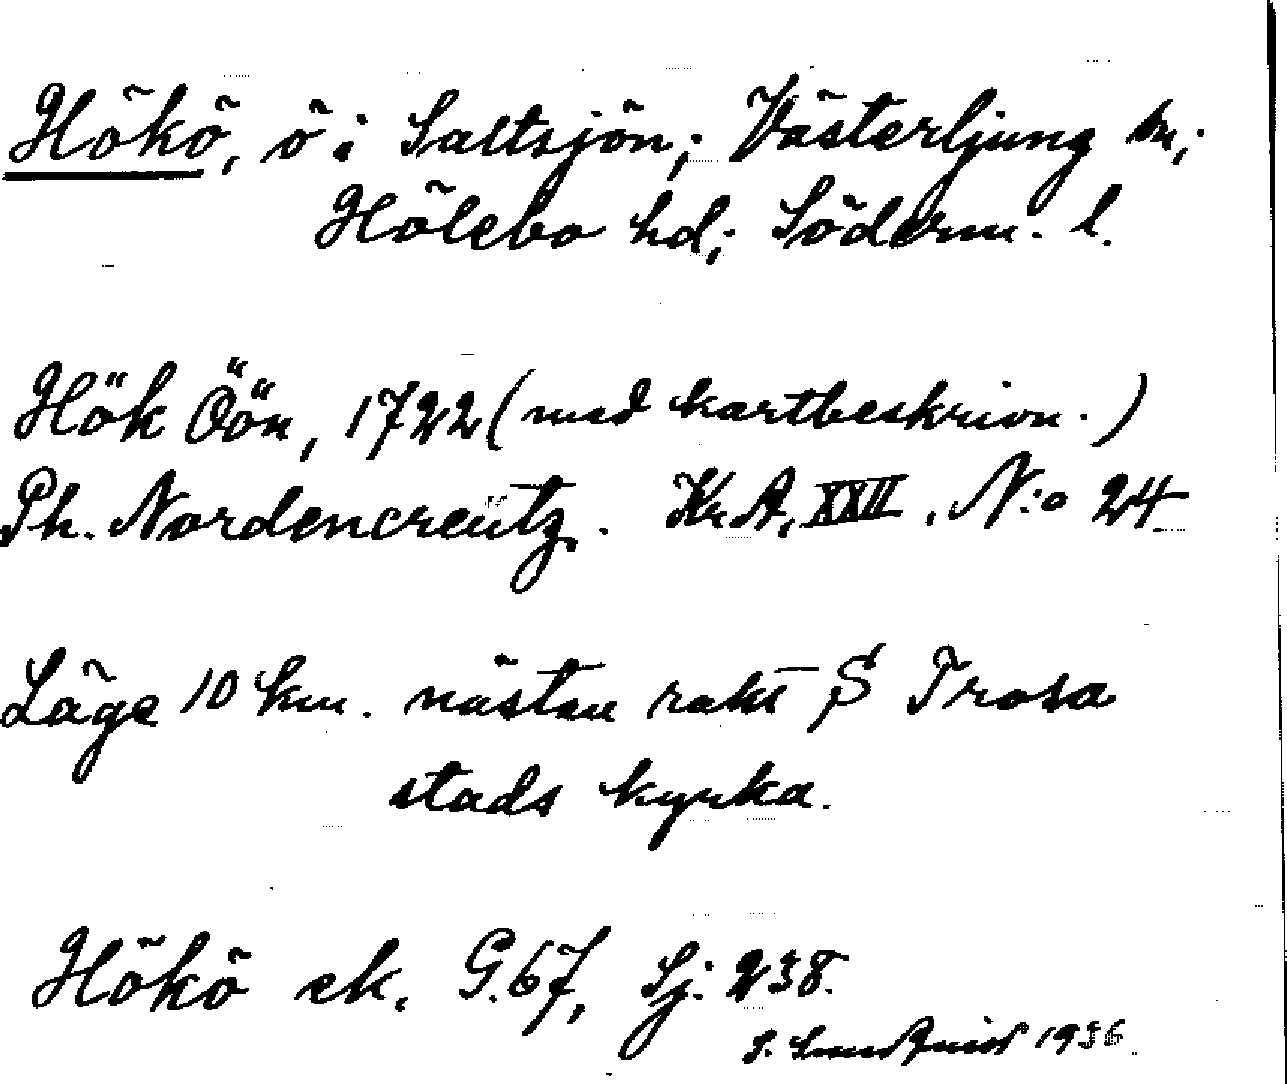 Hökö, ö i Saltsjön; Västerljung sn;
Hölebo hd; Söderm. l.
Hök Öön, 1722 (med kartbeskrivn.)
Ph. Nordencreutz. Kr.A, XXII, N:o 24
Läge 10 km. nästan rakt S Trosa
stads kyrka.
Hökö ek. G.67, Sj: 238.
S. Lundquist 1936